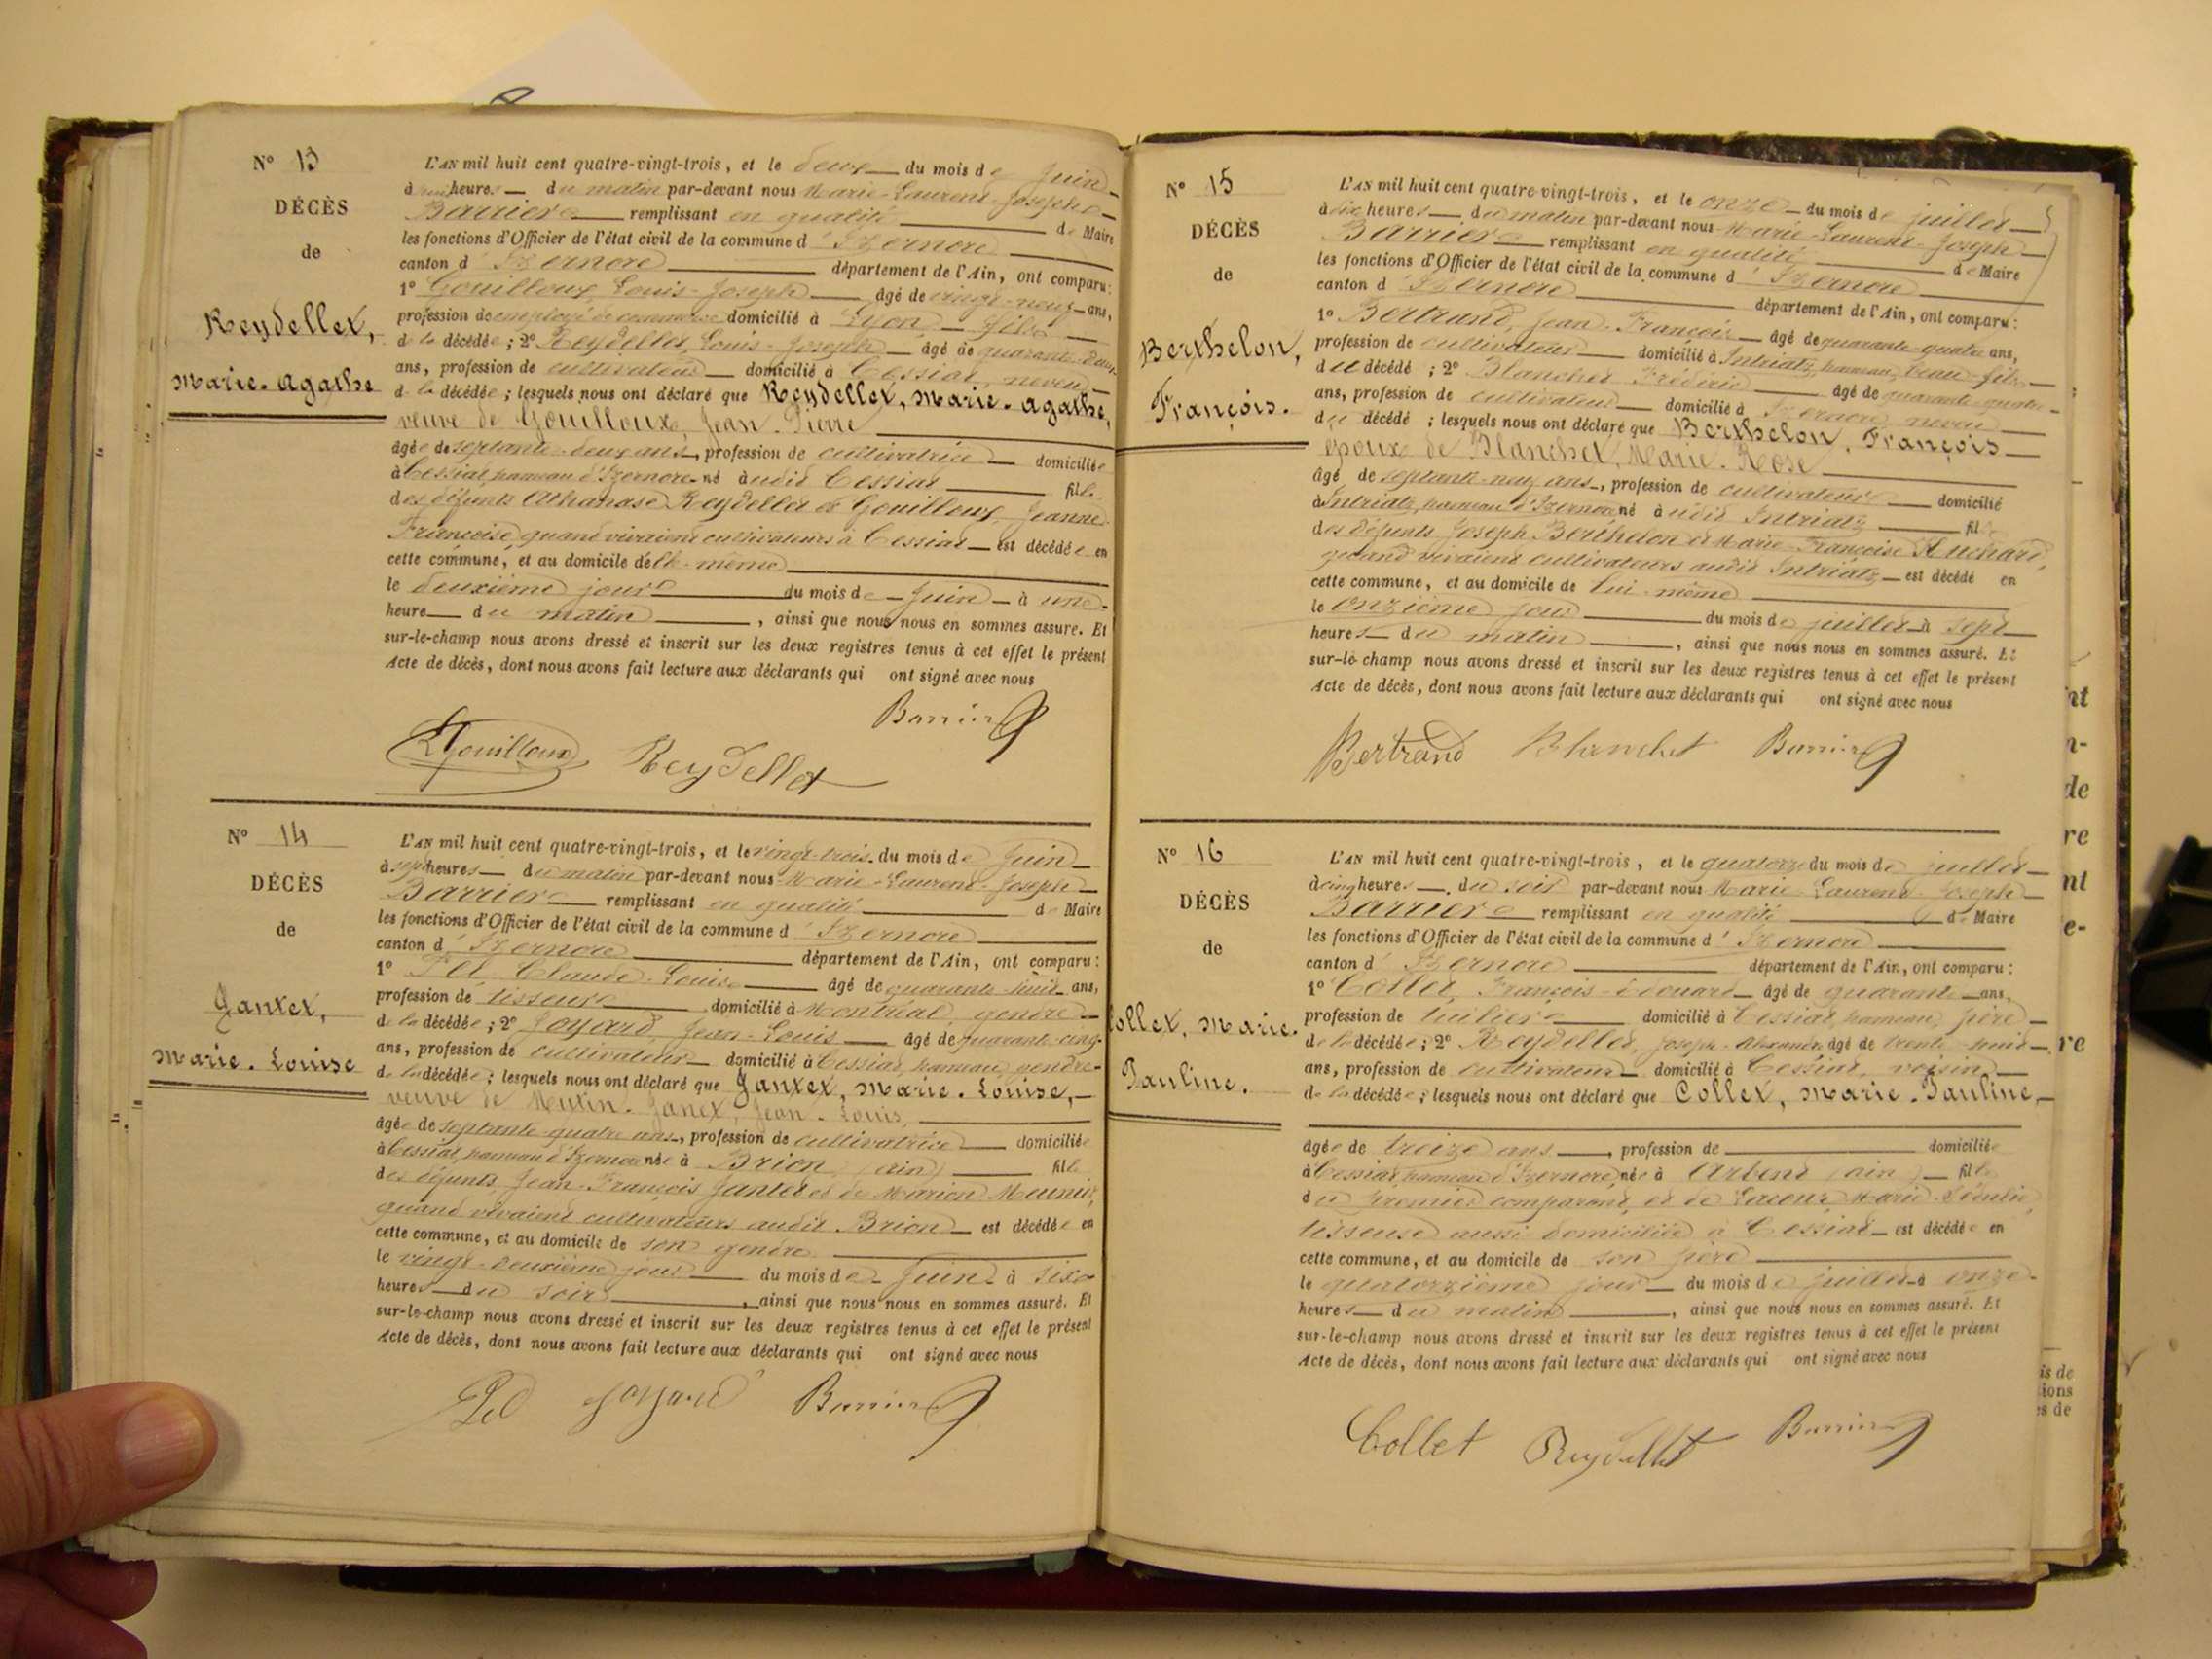 N° 13
DÉCÈS
de
Reydellet,
Marie-Agathe
L'AN mil huit cent quatre-vingt-trois, et le deux du mois de Juin
à heures du matin par-devant nous Marie-Laurent-Joseph
Barrier remplissant en qualité de Maire
les fonctions d'Officier de l'état civil de la commune d'Izernore
canton d'Izernore département de l'Ain, ont comparu:
1° Gouilloux, Louis-Joseph âgé de vingt-neuf ans,
profession de employé de commerce domicilié à Lyon fils
de la décédée; 2° Reydellet, Louis-Joseph âgé de quarante-deux
ans, profession de cultivateur domicilié à Cessiat, neveu
de la décédée; lesquels nous ont déclaré que Reydellet, Marie-Agathe,
veuve de Gouilloux, Jean-Pierre
âgée de septante-deux ans, profession de cultivatrice domiciliée
à Cessiat, hameau d'Izernore né audit Cessiat fille
des défunts Athanase Reydellet et Gouilloux, Jeanne
Françoise, quand vivaient cultivateurs à Cessiat est décédée en
cette commune, et au domicile d'elle-même
le deuxième jour du mois de Juin à une
heure du matin, ainsi que nous nous en sommes assuré. Et
sur-le-champ nous avons dressé et inscrit sur les deux registres tenus à cet effet le présent
Acte de décès, dont nous avons fait lecture aux déclarants qui ont signé avec nous
Barrier
LGouilloux Reydellet
N° 14
DÉCÈS
de
Jantet,
Marie-Louise
L'AN mil huit cent quatre-vingt-trois, et le vingt-trois du mois de Juin
à sept heures du matin par-devant nous Marie-Laurent-Joseph
Barrier remplissant en qualité de Maire
les fonctions d'Officier de l'état civil de la commune d'Izernore
canton d'Izernore département de l'Ain, ont comparu:
1° Claude-Louis âgé de quarante-huit ans,
profession de tisseur domicilié à Montréal, gendre
de la décédée; 2° Joyard, Jean-Louis âgé de quarante-cinq
ans, profession de cultivateur domicilié à Cessiat, hameau, gendre
de la décédée; lesquels nous ont déclaré que Jantet, Marie-Louise,
veuve de Mutin-Janet, Jean-Louis,
âgée de septante-quatre ans, profession de cultivatrice domiciliée
à Cessiat, hameau d'Izernore née à Brion (ain) fille
des défunts Jean-François Jantet et de Marion Meunier,
quand vivaient cultivateurs audit Brion est décédée en
cette commune, et au domicile de son gendre
le vingt-deuxième jour du mois de Juin à six
heures du soir, ainsi que nous nous en sommes assuré. Et
sur-le-champ nous avons dressé et inscrit sur les deux registres tenus à cet effet le présent
Acte de décès, dont nous avons fait lecture aux déclarants qui ont signé avec nous
Joyard Barrier
N° 15
DÉCÈS
de
Berthelon,
François.
L'AN mil huit cent quatre-vingt-trois, et le onze du mois de juillet
à dix heures du matin par-devant nous Marie-Laurent-Joseph
Barrier remplissant en qualité de Maire
les fonctions d'Officier de l'état civil de la commune d'Izernore
canton d'Izernore département de l'Ain, ont comparu:
1° Bertrand, Jean-François âgé de quarante-quatre ans,
profession de cultivateur domicilié à Intriatz, hameau, beau-fils
du décédé; 2° Blanchet, Frédéric âgé de quarante-quatre
ans, profession de cultivateur domicilié à Izernore, neveu
du décédé; lesquels nous ont déclaré que Berthelon, François
époux de Blanchet, Marie-Rose
âgé de septante-neuf ans, profession de cultivateur domicilié
à Intriatz, hameau d'Izernore né audit Intriatz fils
des défunts Joseph Berthelon et Marie-Françoise
quand vivaient cultivateurs audit Intriatz est décédé en
cette commune, et au domicile de lui-même
le onzième jour du mois de juillet à sept
heures du matin, ainsi que nous nous en sommes assuré. Et
sur-le-champ nous avons dressé et inscrit sur les deux registres tenus à cet effet le présent
Acte de décès, dont nous avons fait lecture aux déclarants qui ont signé avec nous
Bertrand Blanchet Barrier
N° 16
DÉCÈS
de
Collet, Marie-
Pauline.
L'AN mil huit cent quatre-vingt-trois, et le quatorze du mois de juillet
à cinq heures du soir par-devant nous Marie-Laurent-Joseph
Barrier remplissant en qualité de Maire
les fonctions d'Officier de l'état civil de la commune d'Izernore
canton d'Izernore département de l'Ain, ont comparu:
1° Collet, François-Edouard âgé de quarante ans,
profession de tuilier domicilié à Cessiat, hameau, père
de la décédée; 2° Reydellet, Joseph-Alexandre âgé de trente-huit
ans, profession de cultivateur domicilié à Cessiat, voisin
de la décédée; lesquels nous ont déclaré que Collet, Marie-Pauline,
âgée de treize ans, profession de domiciliée
à Cessiat, hameau d'Izernore, née à Arbent (ain) fille
du premier comparant, et de Lacour, Marie
tisseuse aussi domiciliée à Cessiat est décédée en
cette commune, et au domicile de son père
le quatorzième jour du mois de juillet à onze
heures du matin, ainsi que nous nous en sommes assuré. Et
sur-le-champ nous avons dressé et inscrit sur les deux registres tenus à cet effet le présent
Acte de décès, dont nous avons fait lecture aux déclarants qui ont signé avec nous
Collet Reydellet Barrier